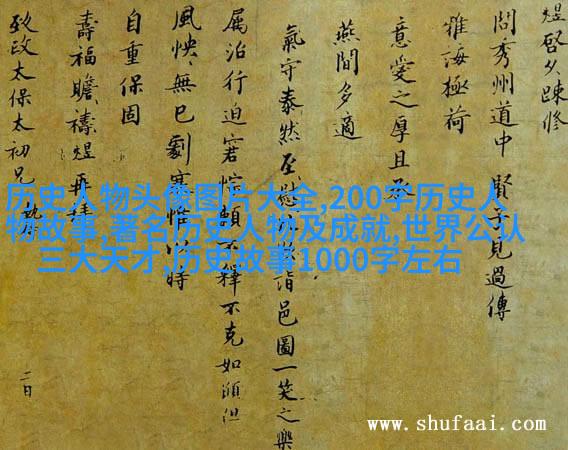 煜啓久疎修
問秀州道中賢子見過傳
雅誨極荷
意愛之厚且承
燕閒多適
氣守泰然至慰詣邑圖一笑之樂
屬治行迫窘不釋不克如願但
風怏無已劇寒惟時
自重保固
壽福瞻禱煜再拜
致政太保太初兄
二日
历史人物头像图片大全,200字历史人
物故事,著名历史人物及成就,世界公认
三大天才,历史故事1000字左右
www.shufaai.com